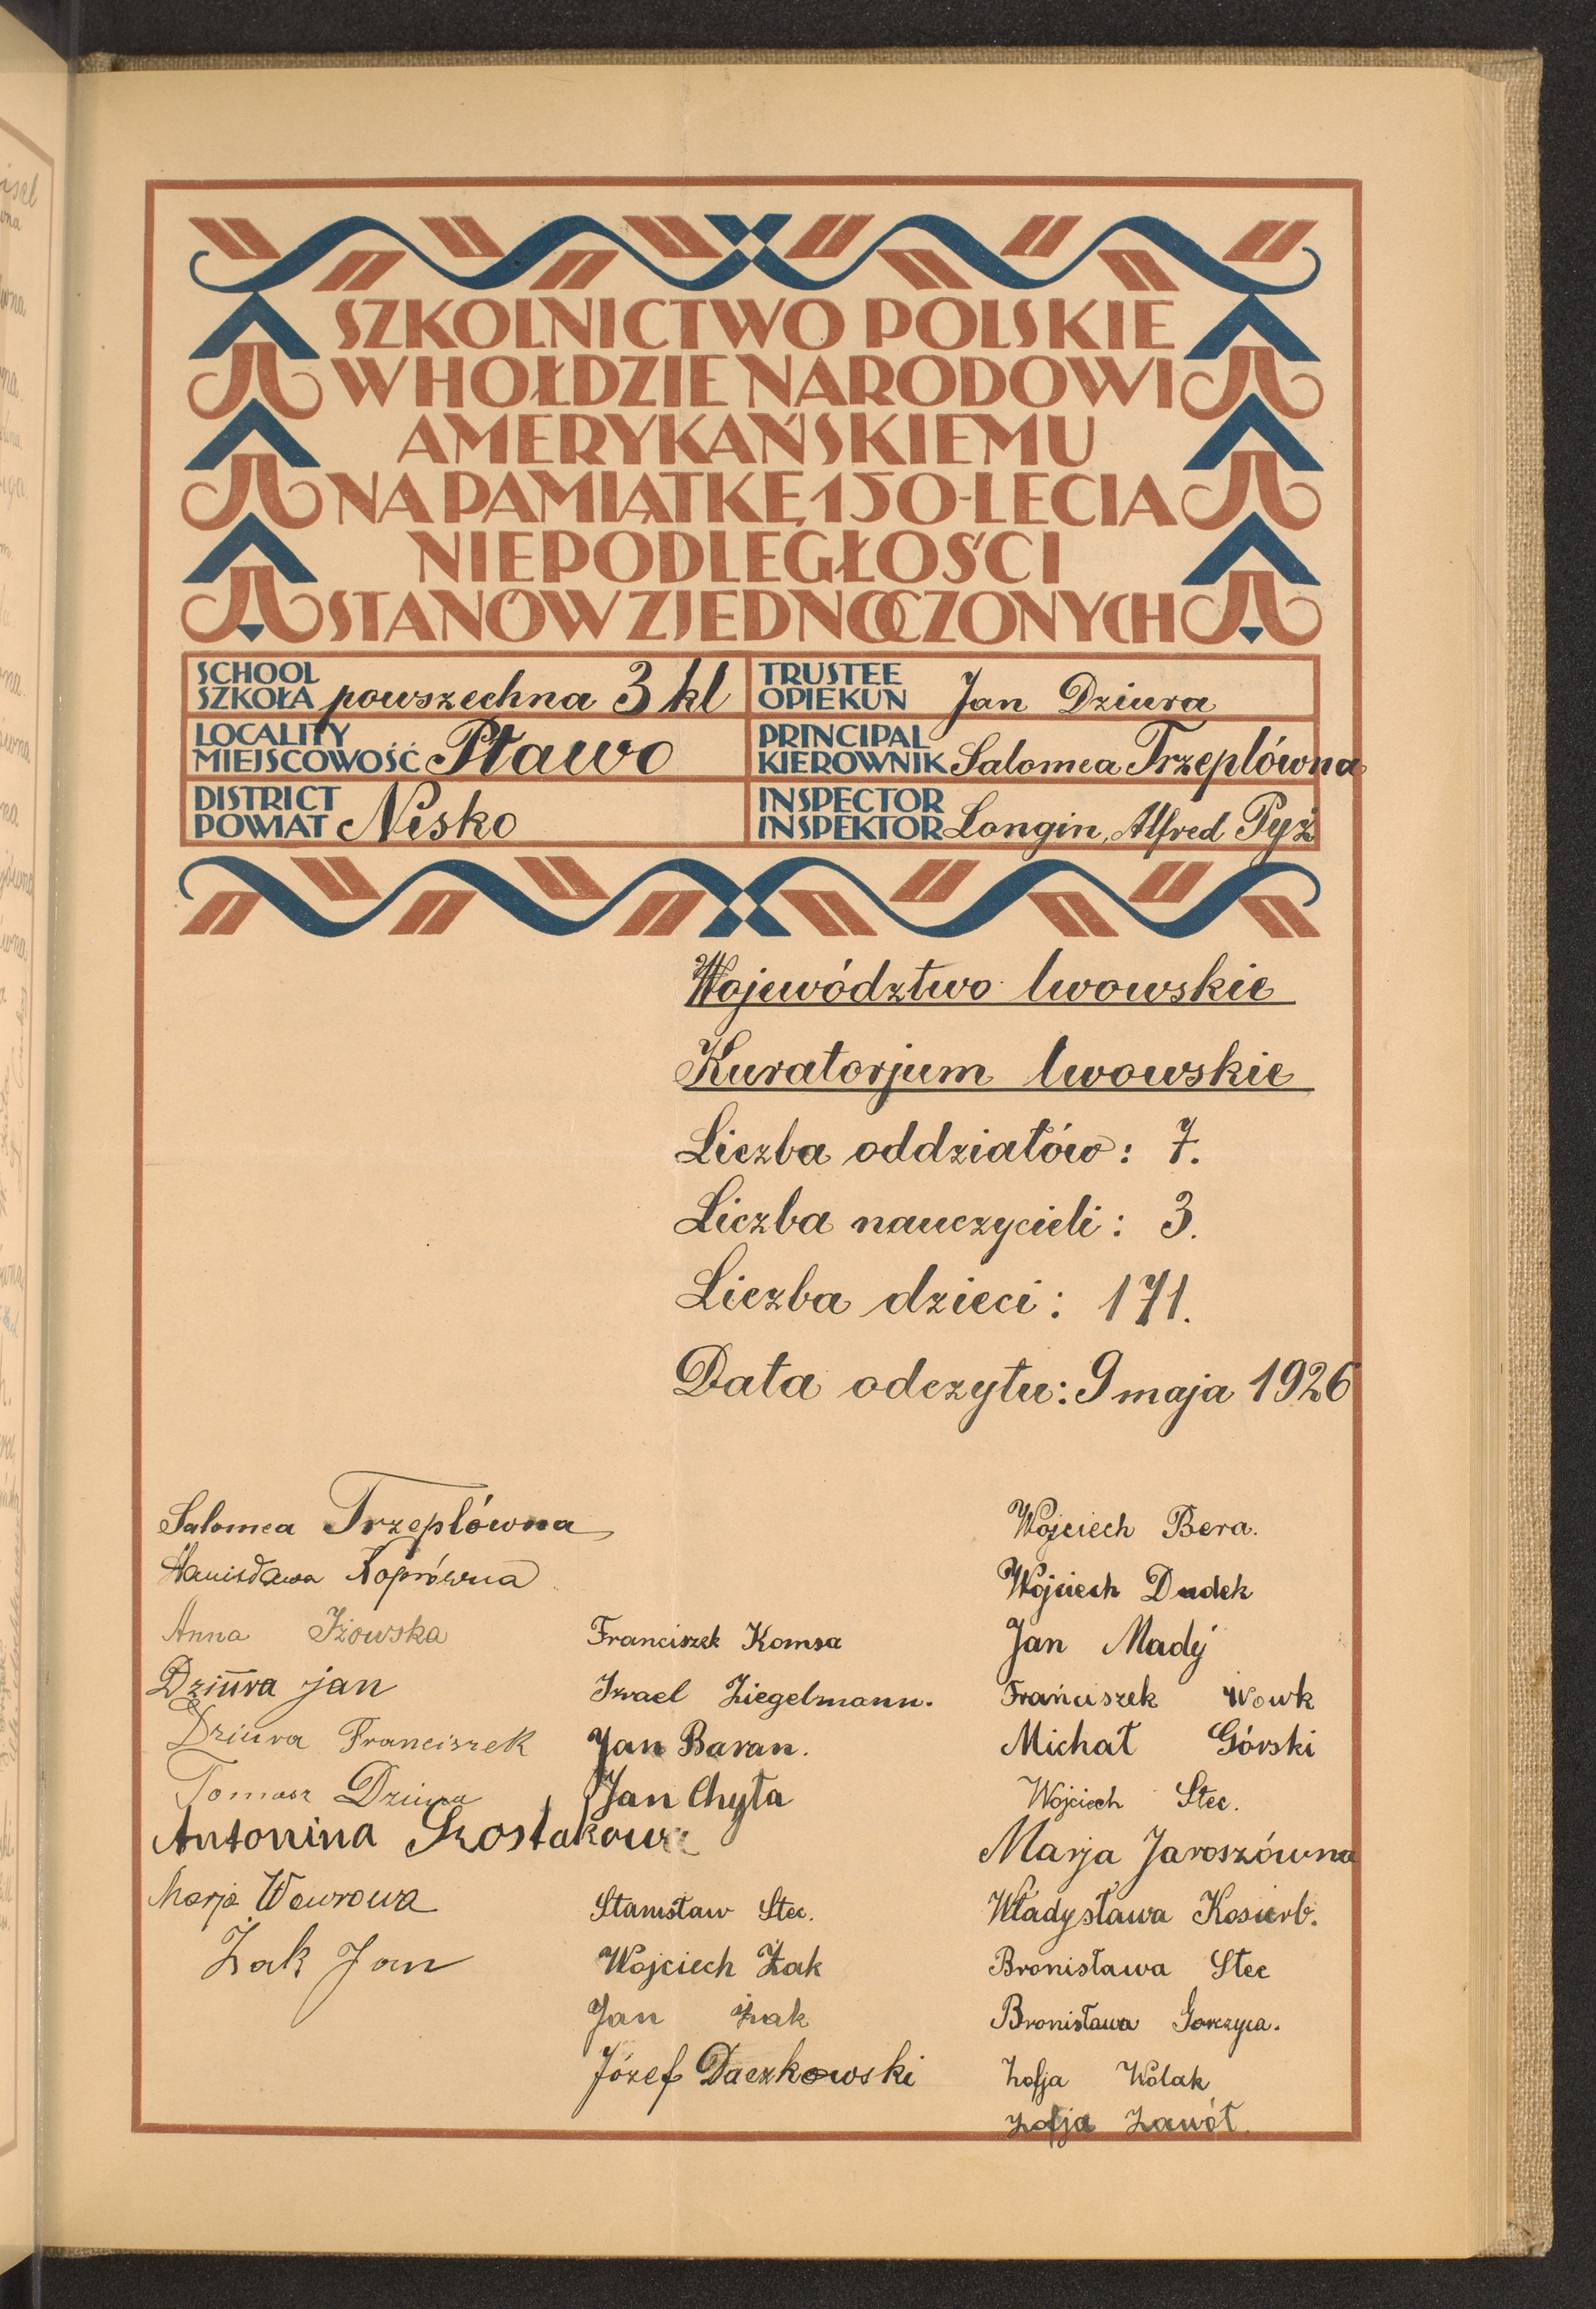 SZKOLNICTWO POLSKIE
W HOŁDZIE NARODOWI
AMERYKAŃSKIEMU
NA PAMIĄTKĘ 150-LECIA
NIEPODLEGŁOŚCI
STANÓW ZJEDNOCZONYCH
SCHOOL
SZKOŁA powszechna 3 kl
TRUSTEE
OPIEKUN Jan Dziura
LOCALITY
MIEJSCOWOŚĆ Pławo
PRINCIPAL
KIEROWNIK Salomea Trzeplówna
DISTRICT
POWIAT Nisko
INSPECTOR
INSPEKTOR Longin, Alfred Pyż
Województwo lwowskie
Kuratorjum lwowskie
Liczba oddziałów: 7.
Liczba nauczycieli: 3.
Liczba dzieci: 171.
Data odczytu: 9 maja 1926
Salomea Trzeplówna
Stanisława Koprówna
Anna Iżowska
Dziura jan
Dziura Franciszek
Tomasz Dziura
Antonina Szostakowa
Marja Wawrowa
Żak Jan
Franciszek Komsa
Izrael Ziegelmann.
Jan Baran.
Jan Chyła
Stanisław Stec.
Wojciech Żak
Jan Żak
Józef Daczkowski
Wojciech Bera.
Wojciech Dudek
Jan Madý
Franciszek Wowk
Michał Górski
Wojciech Stec.
Marja Jaroszówna
Władysława Kosierb.
Bronisława Stec
Bronisława Gorczyca.
Zofja Wolak
Zofja Zawół.